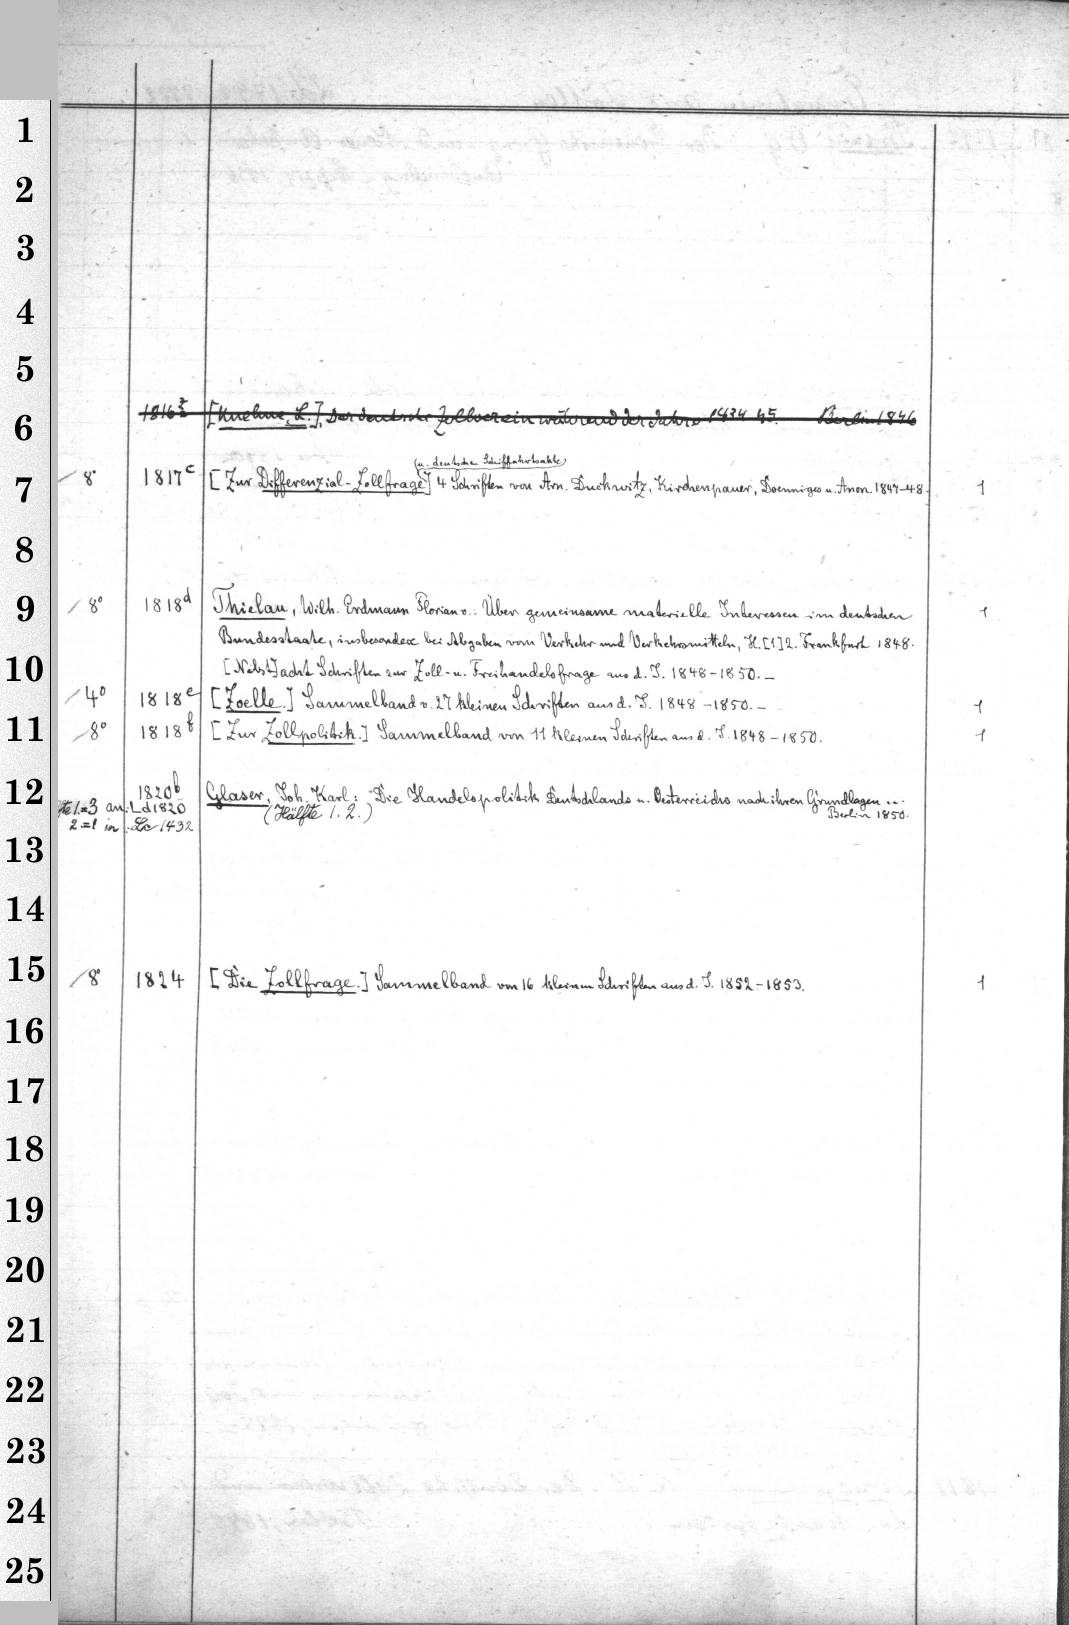 1
2
3
4
5
6 [Kuehne, L.], Der deutsche Zollverein während der Jahre 1834-45. Berlin 1846
(u. deutschen Schifffahrtsakte)
7 8° 1817c [Zur Differenzial-Zollfrage] 4 Schriften von Arn. Duckwitz, Kirchenpauer, Doenniges u. Anon. 1847-48. 1
8
9 8° 1818d Thielau, Wilh. Erdmann Florian v.: Über gemeinsame materielle Interessen im deutschen 1
Bundesstaate, insbesondere bei Abgaben vom Verkehr und Verkehrsmitteln, H. [1] 2. Frankfurt 1848.
10 [Nebst] acht Schriften zur Zoll- u. Freihandelsfrage aus d. J. 1848-1850. –
4° 1818e [Zoelle.] Sammelband v. 27 kleinen Schriften aus d. J. 1848-1850. – 1
11 8° 1818f [Zur Zollpolitik.] Sammelband von 11 kleinen Schriften aus d. J. 1848-1850. 1
12 1820b Glaser, Joh. Karl: Die Handelspolitik Deutschlands u. Oesterreichs nach ihren Grundlagen ...
1.=3 an: Ld 1820 (Hälfte 1. 2.) Berlin 1850.
2.=1 in: Lc 1432
13
14
15 8° 1824 [Die Zollfrage.] Sammelband von 16 kleinen Schriften aus d. J. 1852-1853. 1
16
17
18
19
20
21
22
23
24
25